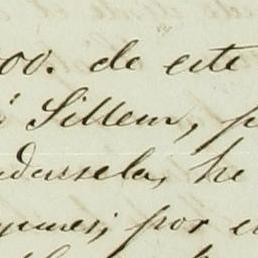 00. de este
á Sillem, p
ndársela, he
ymes; por e